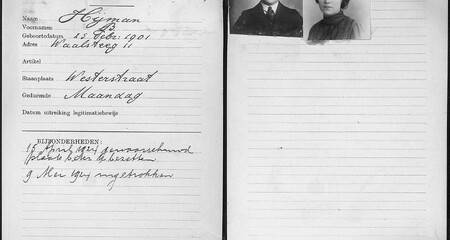 Naam Hijman
Voornamen B.
Geboortedatum 15 Febr. 1901
Adres Waalsteeg 11
Artikel
Staanplaats Westerstraat
Gedurende Maandag
Datum uitreiking legitimatiebewijs
BIJZONDERHEDEN:
15 April 1924 gewaarschuwd
plaats beter te bezetten
9 Mei 1924 ingetrokken